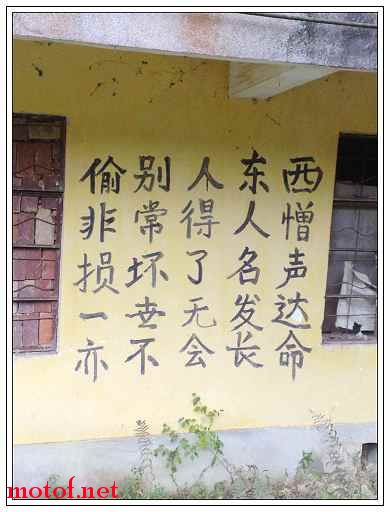 偷别人东西
非常得人憎
损坏了名声
一世无发达
亦不会长命
motof.net